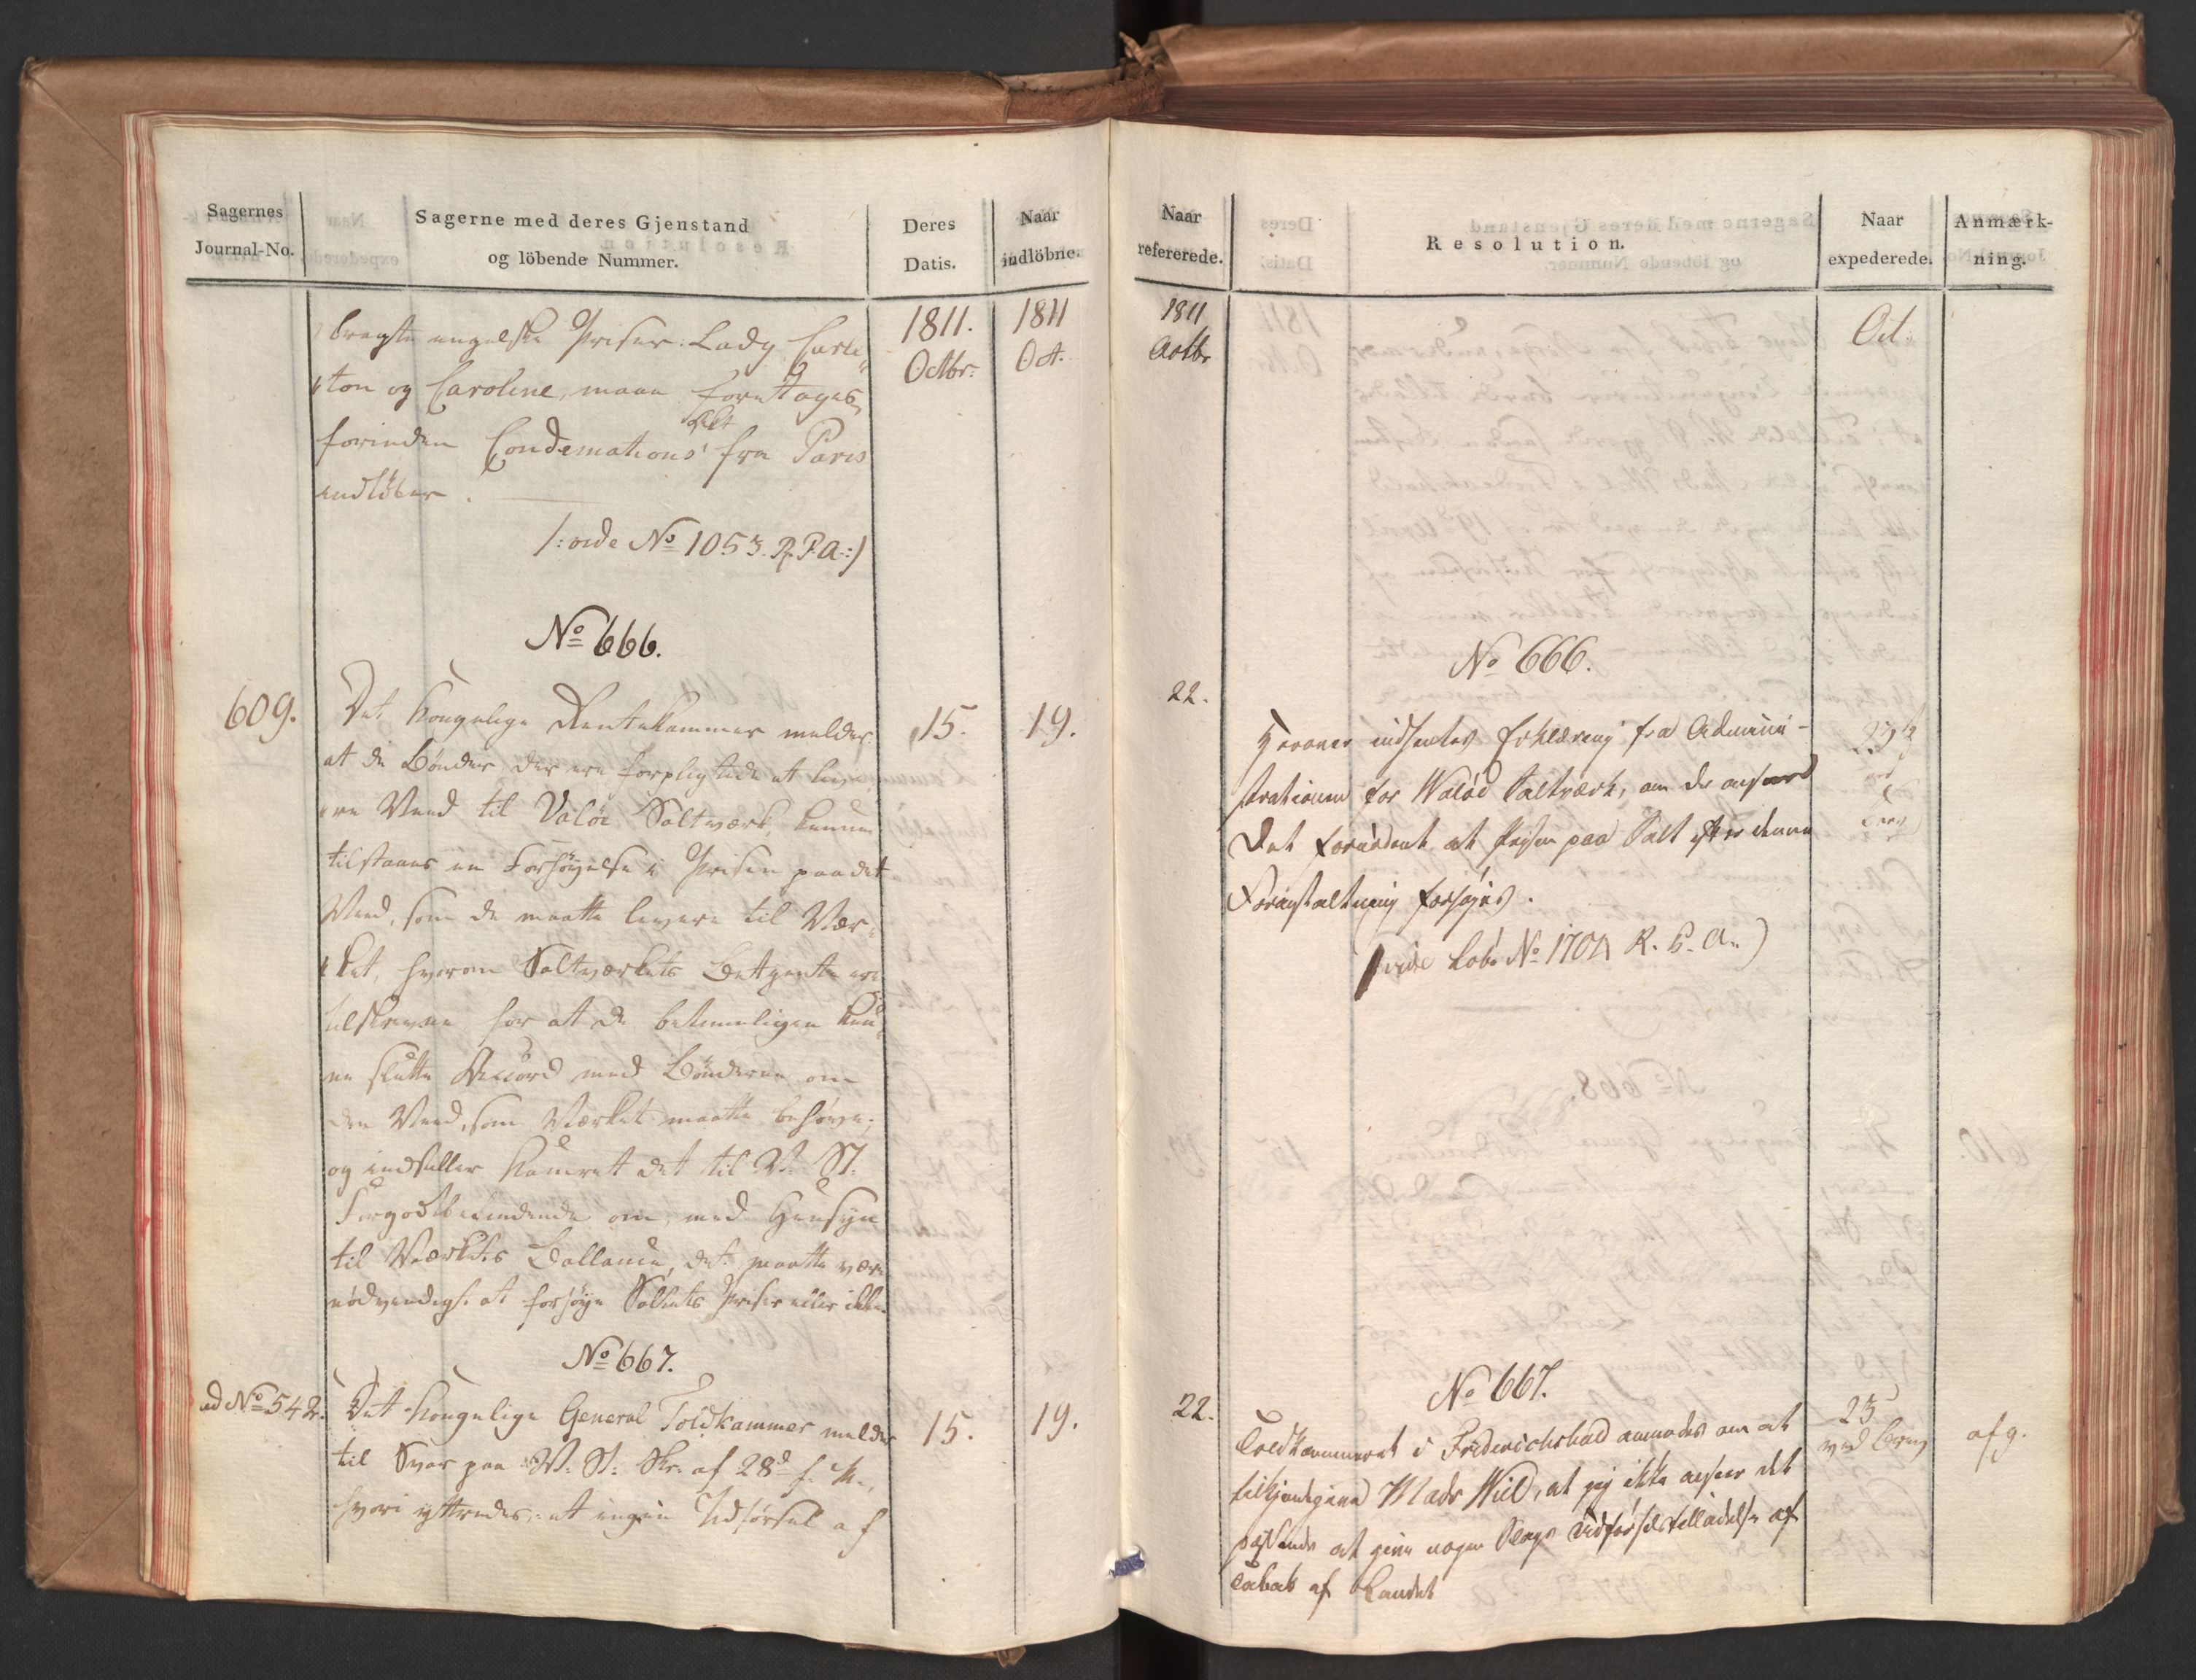 Sagernes
Journal-No.
Sagerne med deres Gjenstand
og löbende Nummer.
Deres
Datis.
Naar
indlöbne.
1811.
Octbr:
1811
Oct.
bragte engelske Priser: Lady Carle„
„ton og Caroline, maae foretages,
forinden Condemnations Act fra Paris
indløber.
/: vide No 1053. R. P. A:/
No 666.
609.
Det Kongelige Rentekammer melder
15.
19.
at de Bønder der ere forpligtede at leve„
„re Veed til Valöe Saltværk, kunne
tilstaaes en Forhøyelse i Prisen paa det
Veed, som de maatte levere til Vær„
„ket, hvorom Saltværkets Betjente ere
tilskrevne, for at de betimeligen kun„
ne slutte Accord med Bønderne om
den Veed, som Værket maatte behøve;
og indstiller Kamret det til V. St.
Forgodtbefindende om, med Hensyn
til Værkets Ballance, det maatte være
nødvendigt at forhøye Saltets Priser eller ikke.
No 667.
ad No 542.
Det Kongelige General Toldkammer melder
15.
19.
til Svar paa V: St: Skr. af 28d f. M.,
hvori yttredes, at ingen Udførsel af
Naar
refererede.
Resolution.
Naar
expederede.
Anmærk-
ning.
1811
Octbr
Oct.
No 666.
22.
Herover indhentes Erklæring fra Admini-
strationen for Waløe Saltværk, om de anseer
Det fornødent at Prisen paa Salt efter denne
Foranstaltning forhøjes.
(vide Løb. No 1701 R. P. A.)
No 667.
22.
Toldkammeret i Friderichshald anmodes om at
23
ved Brev
afg.
tilkjendegive Mads Wiel, at jeg ikke anseer det
passende at give nogen Slags Udførselstilladelse af
Tobak af Landet